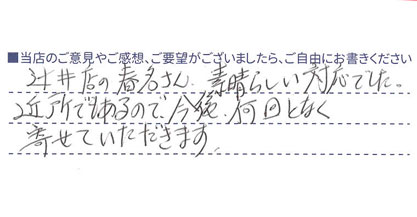 ■当店のご意見やご感想、ご要望がございましたら、ご自由にお書きください
辻井店の春名さん、素晴らしい対応でした。
近所でもあるので、今後、何回となく
寄せていただきます。